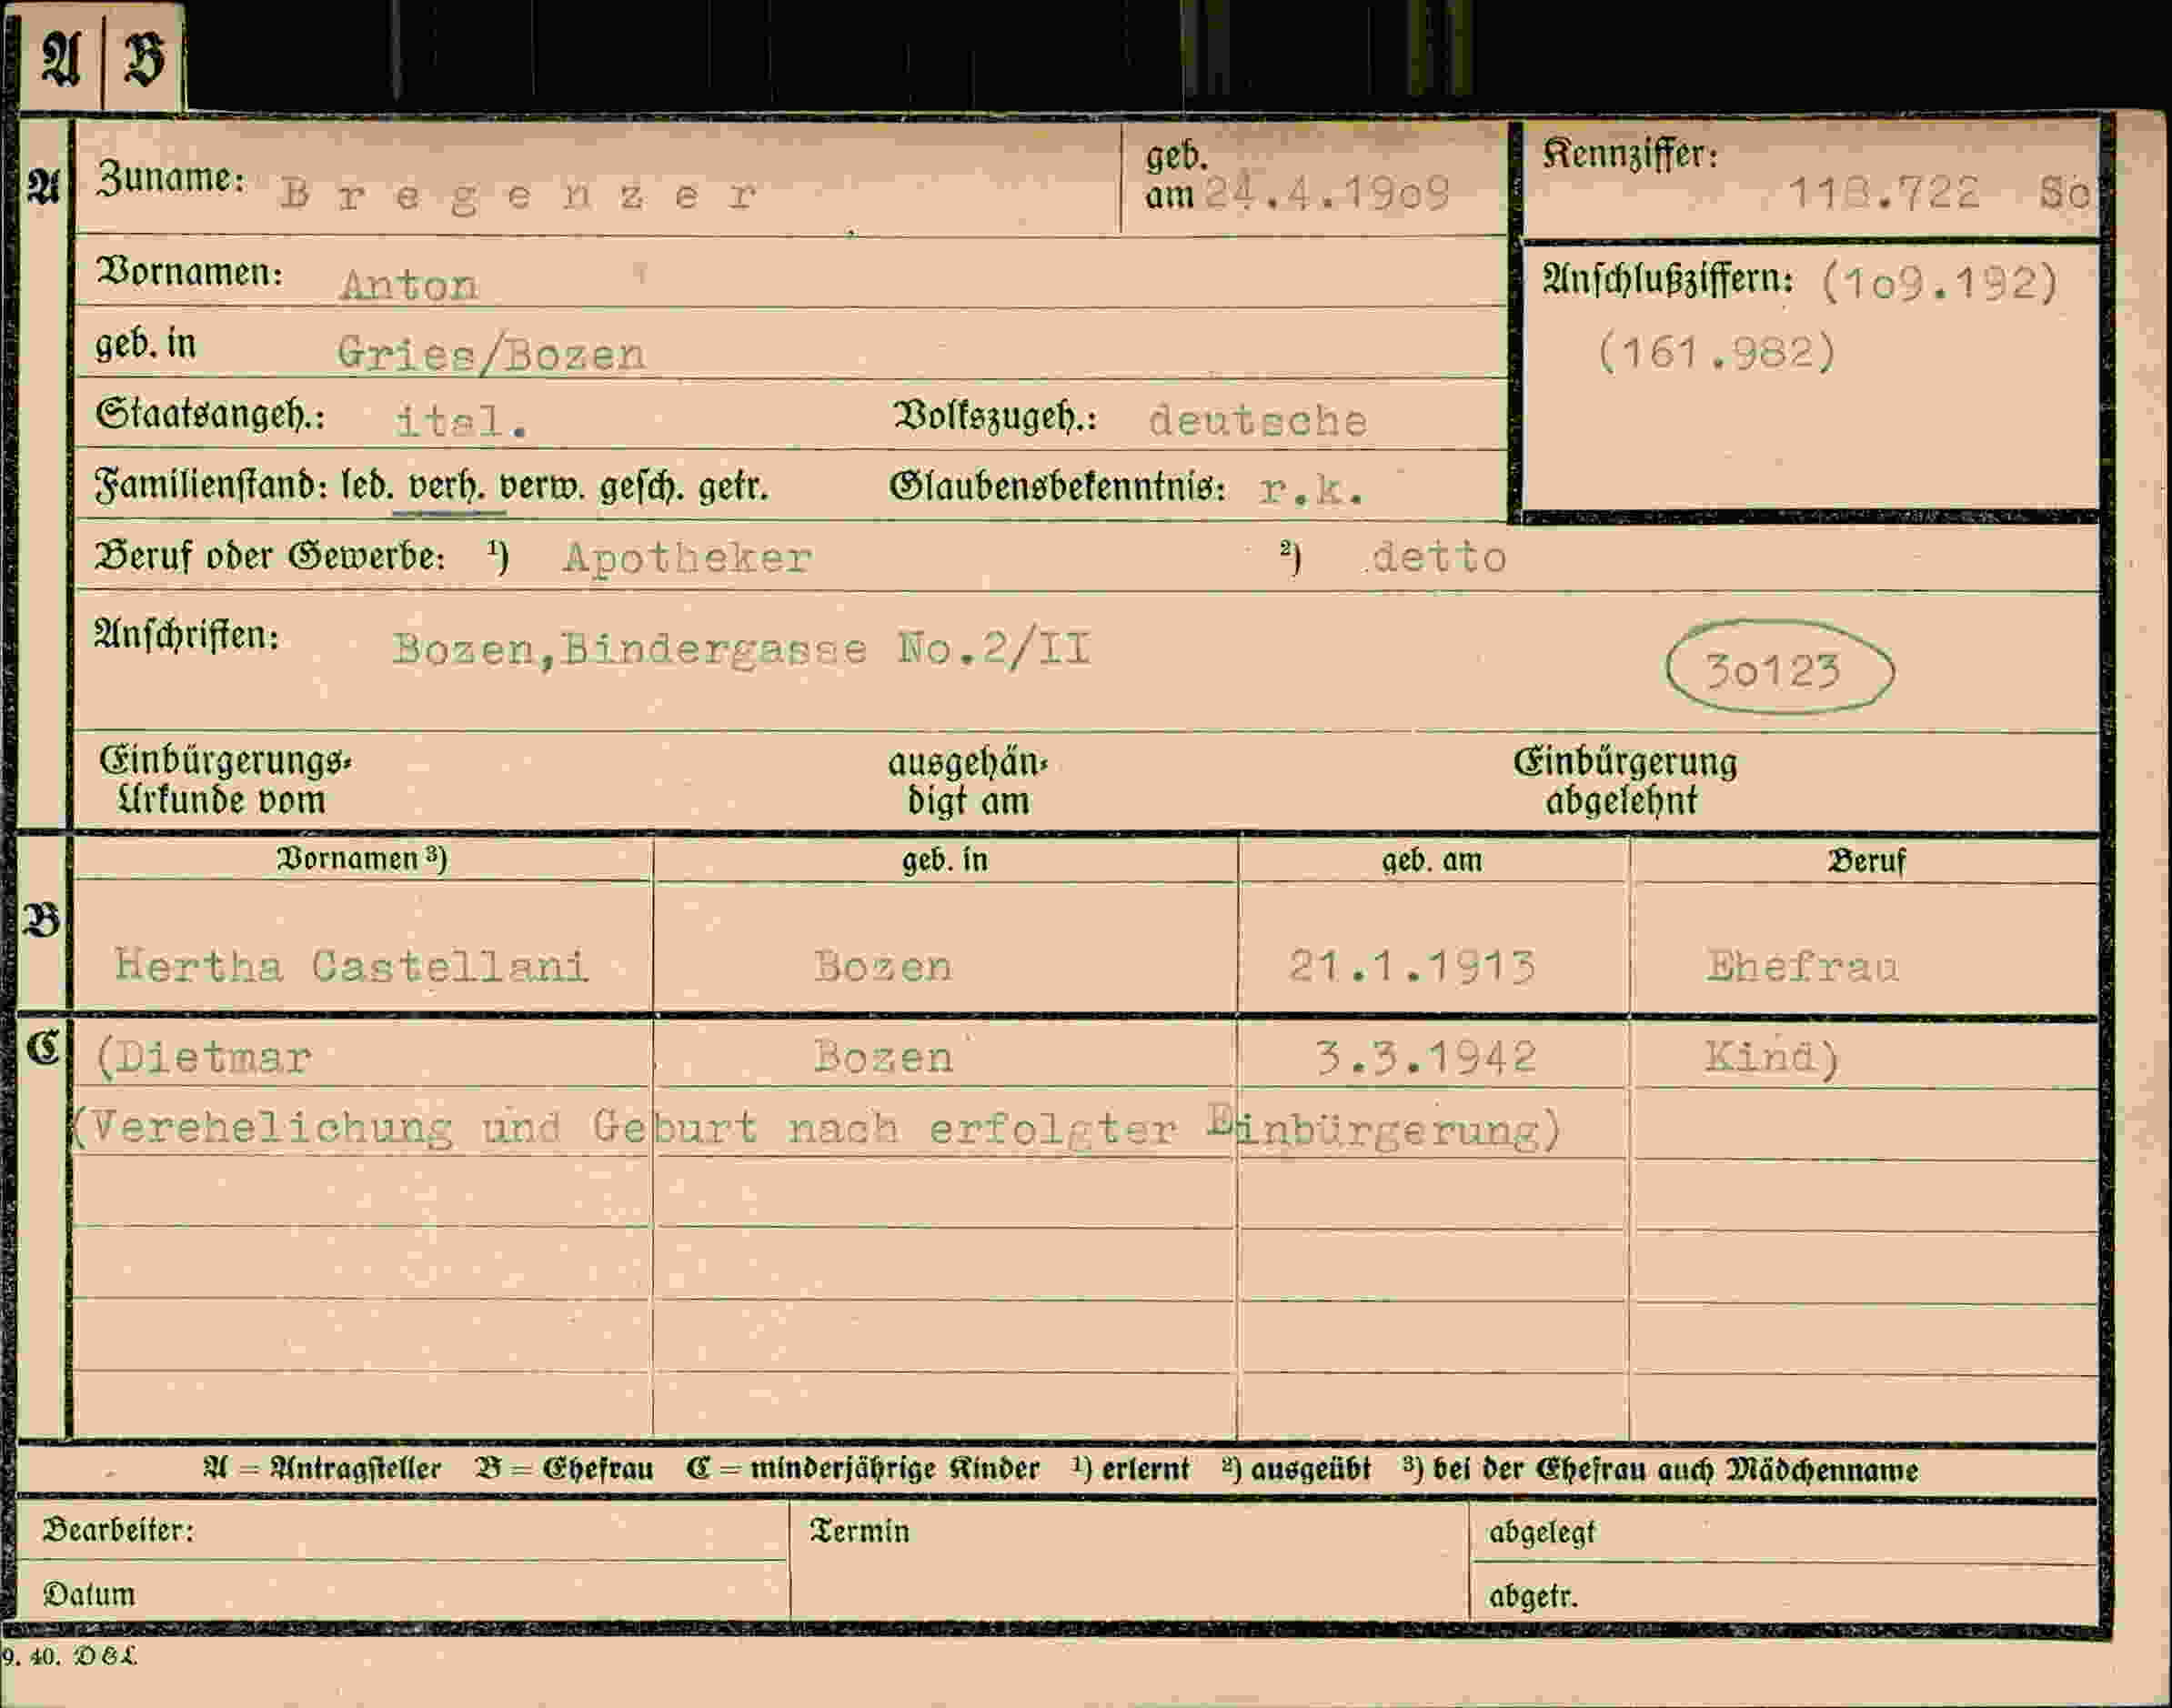 A B
A
Zuname: Bregenzer geb. am 24.4.1909 Kennziffer: 118.722 So
Vornamen: Anton Anschlußziffern: (1o9.192)
geb. in Gries/Bozen (161.982)
Staatsangeh.: ital. Volkszugeh.: deutsche
Familienstand: led. verh. verw. gesch. getr. Glaubensbekenntnis: r.k.
Beruf oder Gewerbe: 1) Apotheker 2) detto
Anschriften: Bozen,Bindergasse No.2/II 3o123
Einbürgerungs-Urkunde vom ausgehändigt am Einbürgerung abgelehnt
Vornamen 3) geb. in geb. am Beruf
B
Hertha Castellani Bozen 21.1.1913 Ehefrau
C (Dietmar Bozen 3.3.1942 Kind)
(Verehelichung und Geburt nach erfolgter Einbürgerung)
A = Antragsteller B = Ehefrau C = minderjährige Kinder 1) erlernt 2) ausgeübt 3) bei der Ehefrau auch Mädchenname
Bearbeiter: Termin abgelegt
Datum abgetr.
9. 40. D&L